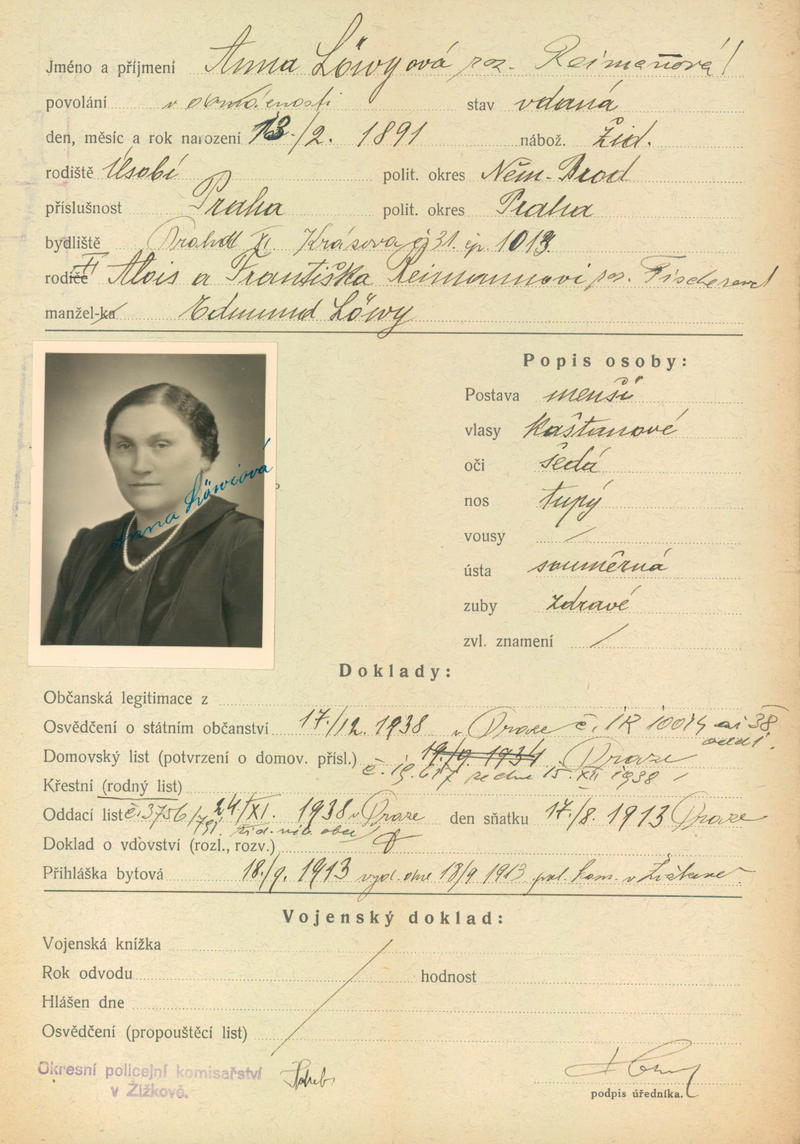 Jméno a příjmení Anna Löwyová roz. Reimanová
povolání v domácnosti stav vdaná
den, měsíc a rok narození 13./2. 1891 nábož. žid.
rodiště Úsobí polit. okres Něm. Brod
příslušnost Praha polit. okres Praha
bydliště Praha XI. Krásova č. 31 čp. 1013.
rodiče Alois a Františka Reimannovi roz. Fischerová
manžel-ka Edmund Löwy
Anna Löwiová
Popis osoby:
Postava menší
vlasy kaštanové
oči šedá
nos tupý
vousy /
ústa souměrná
zuby zdravé
zvl. znamení /
Doklady:
Občanská legitimace z
Osvědčení o státním občanství 17./12. 1938 v Praze č.
Domovský list (potvrzení o domov. přísl.) 19./9. 1934 Praze
ze dne 15. XII 1938
Křestní (rodný list)
Oddací list č. 3756/ 24/XI. 1938 v Praze den sňatku 17./8. 1913 Praze
Doklad o vdovství (rozl., rozv.)
Přihláška bytová 18./9. 1913 vyd. dne 18/9 1913 pol. kom. v Žižkově
Vojenský doklad:
Vojenská knížka
Rok odvodu hodnost
Hlášen dne
Osvědčení (propouštěcí list)
Okresní policejní komisařství
v Žižkově.
podpis úředníka.